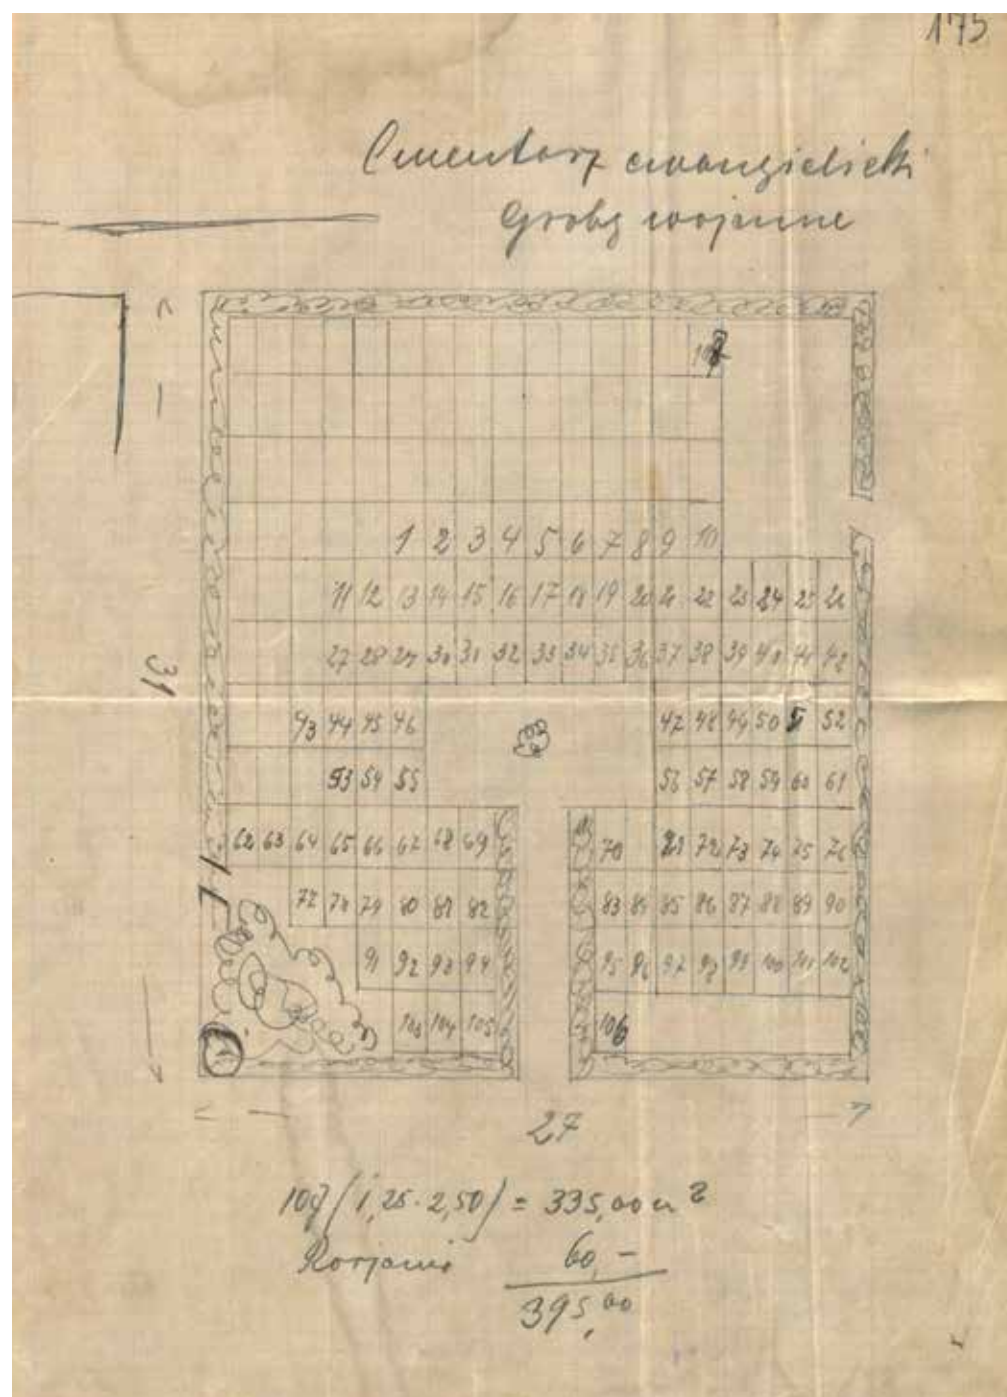 175
Cmentarz ewangielicki
Groby wojenne
107
1 2 3 4 5 6 7 8 9 10
11 12 13 14 15 16 17 18 19 20 21 22 23 24 25 26
27 28 29 30 31 32 33 34 35 36 37 38 39 40 41 42
43 44 45 46 47 48 49 50 51 52
31
53 54 55 56 57 58 59 60 61
62 63 64 65 66 67 68 69 70 71 72 73 74 75 76
77 78 79 80 81 82 83 84 85 86 87 88 89 90
91 92 93 94 95 96 97 98 99 100 101 102
103 104 105 106
27
107 (1,25·2,50) = 335,00 m2
Rosjanie 60,-
395,00